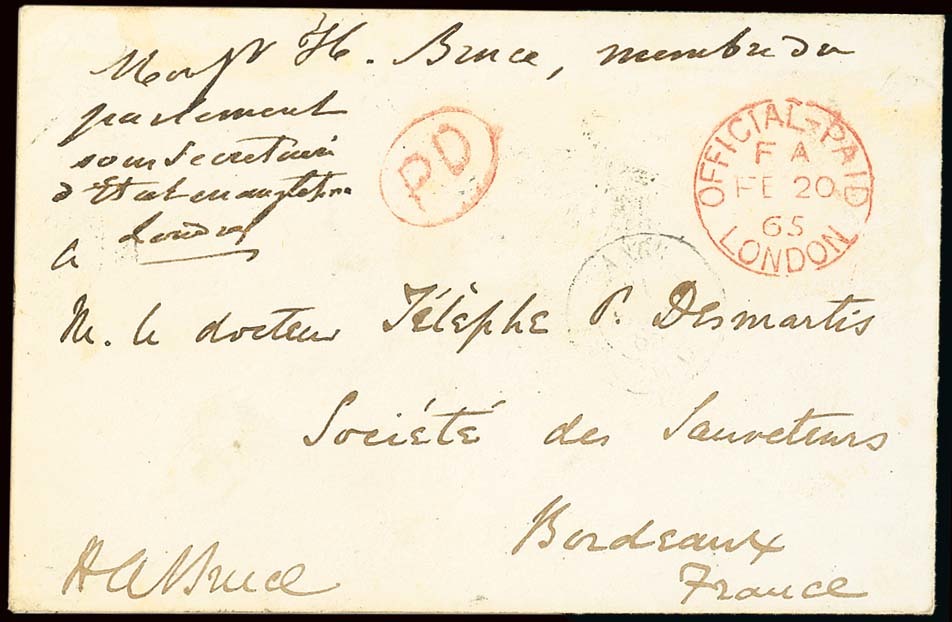 H. Bruce, membre du
parlement
sous secretaire
d'Etat en angleterre
Londres
a
PD
OFFICIAL-PAID
FA
FE 20
65
LONDON
M. le docteur Télèphe P. Desmartis
Société des Sauveteurs
Bordeaux
France
H A Bruce